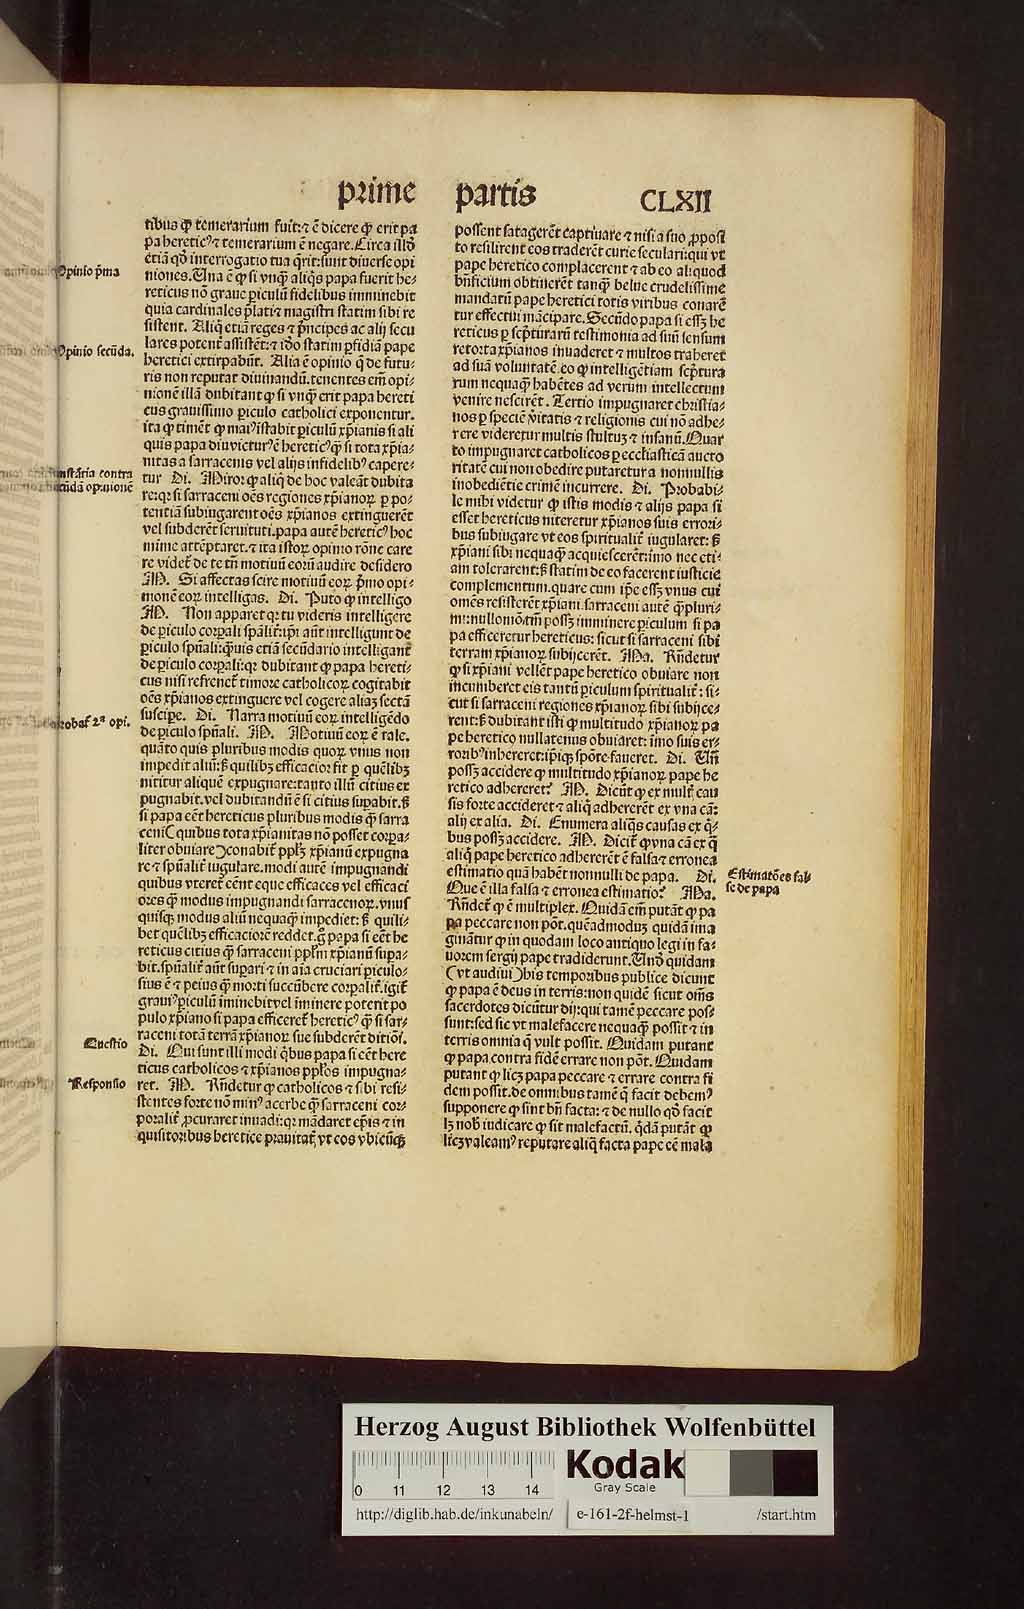 prime partis CLXII
tibus ꝙ temerarium fuit:⁊ ē dicere ꝙ erit pa
pa heretic⁹ ⁊ temerarium ē negare. Circa illō
etiā qō interrogatio tua q̄rit: sunt diuerse opi
niones. Una ē ꝙ si vnq̄ aliq̄s papa fuerit he-
reticus nō graue ꝑiculū fidelibus imminebit
quia cardinales p̄lati ⁊ magistri statim sibi re
sistent. Aliq̄ etiā reges ⁊ p̄ncipes ac alij secu
lares potent̄ assistēt: ⁊ iō statim ꝑfidiā pape
heretici extirpabūt. Alia ē opinio q̄ de futu-
ris non reputat diuinandū. tenentes em̄ opi-
nionē illā dubitant ꝙ si vnq̄ erit papa hereti
cus grauissimo ꝑiculo catholici exponentur.
ita ꝙ timēt ꝙ mai⁹ instabit ꝑiculū xp̄ianis si ali
quis papa diu victur⁹ ē heretic⁹ q̄ si tota xp̄ia-
nitas a sarracenis vel alijs infidelib⁹ capere-
tur Di. Miroꝛ ꝙ aliq̄ de hoc valeāt dubita
re: qꝛ si sarraceni oēs regiones xp̄ianoꝝ ꝑ po-
tentiā subiugarent oēs xp̄ianos extinguerēt
vel subderēt seruituti. papa autē heretic⁹ hoc
mimine attēptaret. ⁊ ita istoꝝ opinio rōne care
re videt̄ de te tn̄ motiuū eorū audire desidero
M. Si affectas scire motiuū eoꝝ p̄mo opi-
nionē eoꝝ intelligas. Di. Puto ꝙ intelligo
M. Non apparet qꝛ tu videris intelligere
de ꝑiculo corꝑali spālit̄: ip̄i aūt intelligunt de
ꝑiculo spūali: q̄uis etiā secūdario intelligant
de ꝑiculo corꝑali: qꝛ dubitant ꝙ papa hereti-
cus nisi refrenet̄ timore catholicoꝝ cogitabit
oēs xp̄ianos extinguere vel cogere aliaꝫ sectā
suscipe. Di. Narra motiuū eoꝝ intelligēdo
de ꝑiculo spūali. M. Motiuū eoꝝ ē tale.
quāto quis pluribus modis quoꝝ vnus non
impedit aliū: ꝫ quilibꝫ efficacior fit ꝑ quēlibꝫ
nititur aliquē expugnare: tanto illū citius ex
pugnabit. vel dubitandū ē si citius supabit. ꝫ
si papa eēt hereticus pluribus modis q̄ sarra
ceni (quibus tota xp̄ianitas nō posset corpa-
liter obuiare) conabit̄ pp̄lꝫ xp̄ianū expugna
re ⁊ spūalit̄ iugulare. modi autē impugnandi
quibus vteret̄ eēnt eque efficaces vel efficaci
ores q̄ modus impugnandi sarracenoꝝ. vnus
quisqꝫ modus aliū nequaq̄ impediet: ꝫ quili-
bet quēlibꝫ efficaciorē reddet. g̊ papa si eēt he
reticus citius q̄ sarraceni pp̄lm xp̄ianū supa-
bit. spūalit̄ aūt supari ⁊ in aīa cruciari ꝑiculo-
sius ē ⁊ peius q̄ morti succūbere corꝑalit̄. igit̄
graui⁹ ꝑiculū iminebit vel iminere poterit po
pulo xp̄iano si papa efficeret̄ heretic⁹ q̄ si sar-
raceni totā terrā xp̄ianoꝝ sue subderēt ditiōi.
Di. Qui sunt illi modi q̄bus papa si eēt here
ticus catholicos ⁊ xp̄ianos pplos impugna-
ret. M. Rn̄detur ꝙ catholicos ⁊ sibi resi-
stentes forte nō min⁹ acerbe q̄ sarraceni cor-
poralit̄ ꝓcuraret inuadi: qꝛ mādaret ep̄is ⁊ in
quisitoribus heretice prauitat̄ vt eos vbicūqꝫ
possent satagerēt captiuare ⁊ nisi a suo ꝓposi
to resilirent eos traderēt curie seculari: qui vt
pape heretico complacerent ⁊ ab eo aliquod
bn̄ficium obtinerēt tanq̄ belue crudelissime
mandatū pape heretici totis viribus conarē
tur effectui mācipare. Secūdo papa si essꝫ he
reticus ꝑ scp̄turarū testimonia ad suū sensum
retorta xp̄ianos inuaderet ⁊ multos traheret
ad suā voluntatē. eo ꝙ intelligētiam scp̄tura
rum nequaq̄ habētes ad verum intellectum
venire nescirēt. Tertio impugnaret christia-
nos ꝑ speciē v̄itatis ⁊ religionis cui nō adhe-
rere videretur multis stultuꝫ ⁊ insanū. Quar
to impugnaret catholicos ꝑ ecclīasticā aucto
ritatē cui non obedire putaretur a nonnullis
inobediētie crimē incurrere. Di. Probabi-
le mihi videtur ꝙ istis modis ⁊ alijs papa si
esset hereticus niteretur xp̄ianos suis errori-
bus subiugare vt eos spiritualit̄ iugularet: ꝫ
xp̄iani sibi nequaq̄ acquiescerēt: imo nec eti-
am tolerarent: ꝫ statim de eo facerent iusticie
complementum. quare cum ip̄e essꝫ vnus cui
omēs resisterēt xp̄iani. sarraceni autē q̄pluri-
mi: nullo mō tm̄ possꝫ imminere ꝑiculum si pa
pa efficeretur hereticus: sicut si sarraceni sibi
terram xp̄ianoꝝ subijcerēt. Ma. Rn̄detur
ꝙ si xp̄iani vellēt pape heretico obuiare non
incumberet eis tantū ꝑiculum spiritualit̄: si-
cut si sarraceni regiones xp̄ianoꝝ sibi subijce-
rent: ꝫ dubitant isti ꝙ multitudo xp̄ianoꝝ pa
pe heretico nullatenus obuiaret: imo suis er-
rorib⁹ inhereret: ip̄iqꝫ spōte faueret. Di. Un̄
possꝫ accidere ꝙ multitudo xp̄ianoꝝ pape he
retico adhereret? M. Dicūt ꝙ ex mult̄ cau
sis forte accideret ⁊ aliq̄ adhererēt ex vna cā:
alij ex alia. Di. Enumera aliq̄s causas ex q̄-
bus possꝫ accidere. M. Dicit̄ ꝙ vna cā ex q̄
aliq̄ pape heretico adhererēt ē falsa ⁊ erronea
estimatio quā habēt nonnulli de papa. Di.
Que ē illa falsa ⁊ erronea estimatio? Ma.
Rn̄det̄ ꝙ ē multiplex. Quidā em̄ putāt ꝙ pa
pa peccare non pōt. quēadmoduꝫ quidā ima
ginātur ꝙ in quodam loco antiquo legi in fa-
uorem sergij pape tradiderunt. Unō quidam
(vt audiui) his temporibus publice dicunt
ꝙ papa ē deus in terris: non quidē sicut oēs
sacerdotes dicūtur dij: qui tamē peccare pos-
sunt: sed sic vt malefacere nequaq̄ possit ⁊ in
terris omnia q̄ vult possit. Quidam putant
ꝙ papa contra fidē errare non pōt. Quidam
putant ꝙ licꝫ papa peccare ⁊ errare contra fi
dem possit. de omnibus tamē q̄ facit debem⁹
supponere ꝙ sint bn̄ facta: ⁊ de nullo qō facit
lꝫ nob̄ iudicare ꝙ sit malefactū. q̄dā putāt ꝙ
licꝫ valeam⁹ reputare aliq̄ facta pape eē mala
Opinio p̄ma
Opinio secūda.
instātia contra
secūdā opinionē
probat̄ 2ᵃ opi.
Questio
Responsio
Estimatōes fal-
se de papa
Herzog August Bibliothek Wolfenbüttel
0 11 12 13 14
Kodak
Gray Scale
http://diglib.hab.de/inkunabeln/ e-161-2f-helmst-1 /start.htm